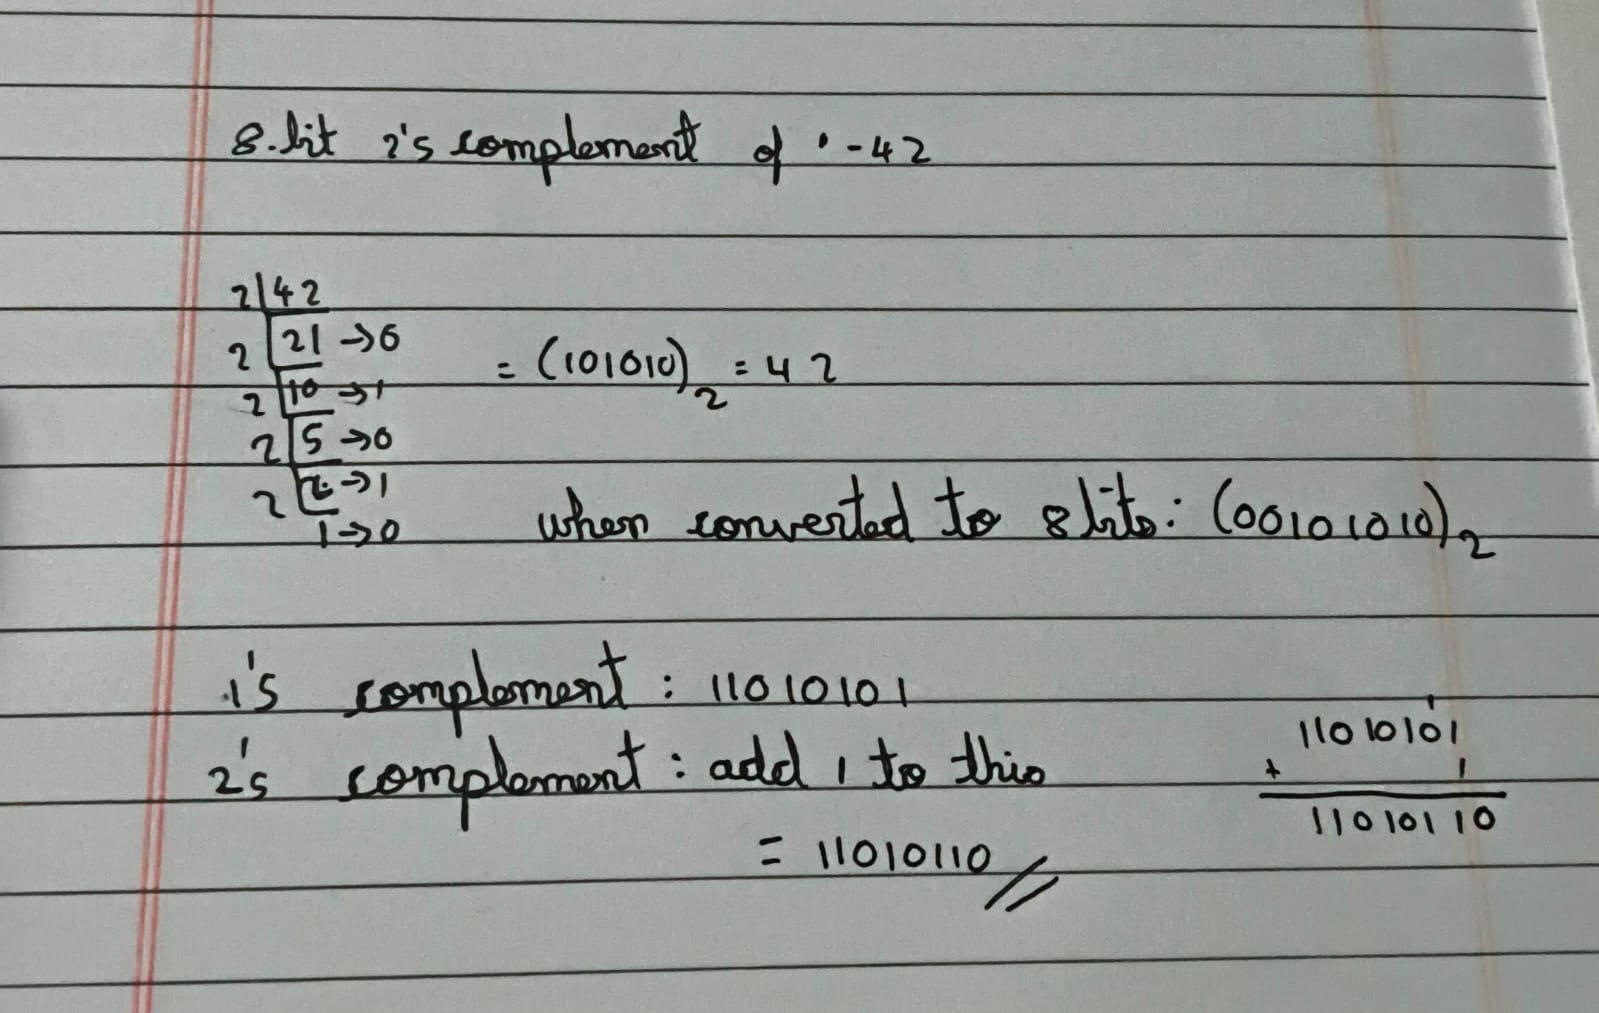 8-bit 2's complement of -42
2|42
2|21 →0
2|10 →1
2|5 →0
2|2 →1
1→0
= (101010)₂ = 42
when converted to 8 bits: (00101010)₂
1's complement: 11010101
2's complement: add 1 to this
= 11010110
1
11010101
+ 1
11010110